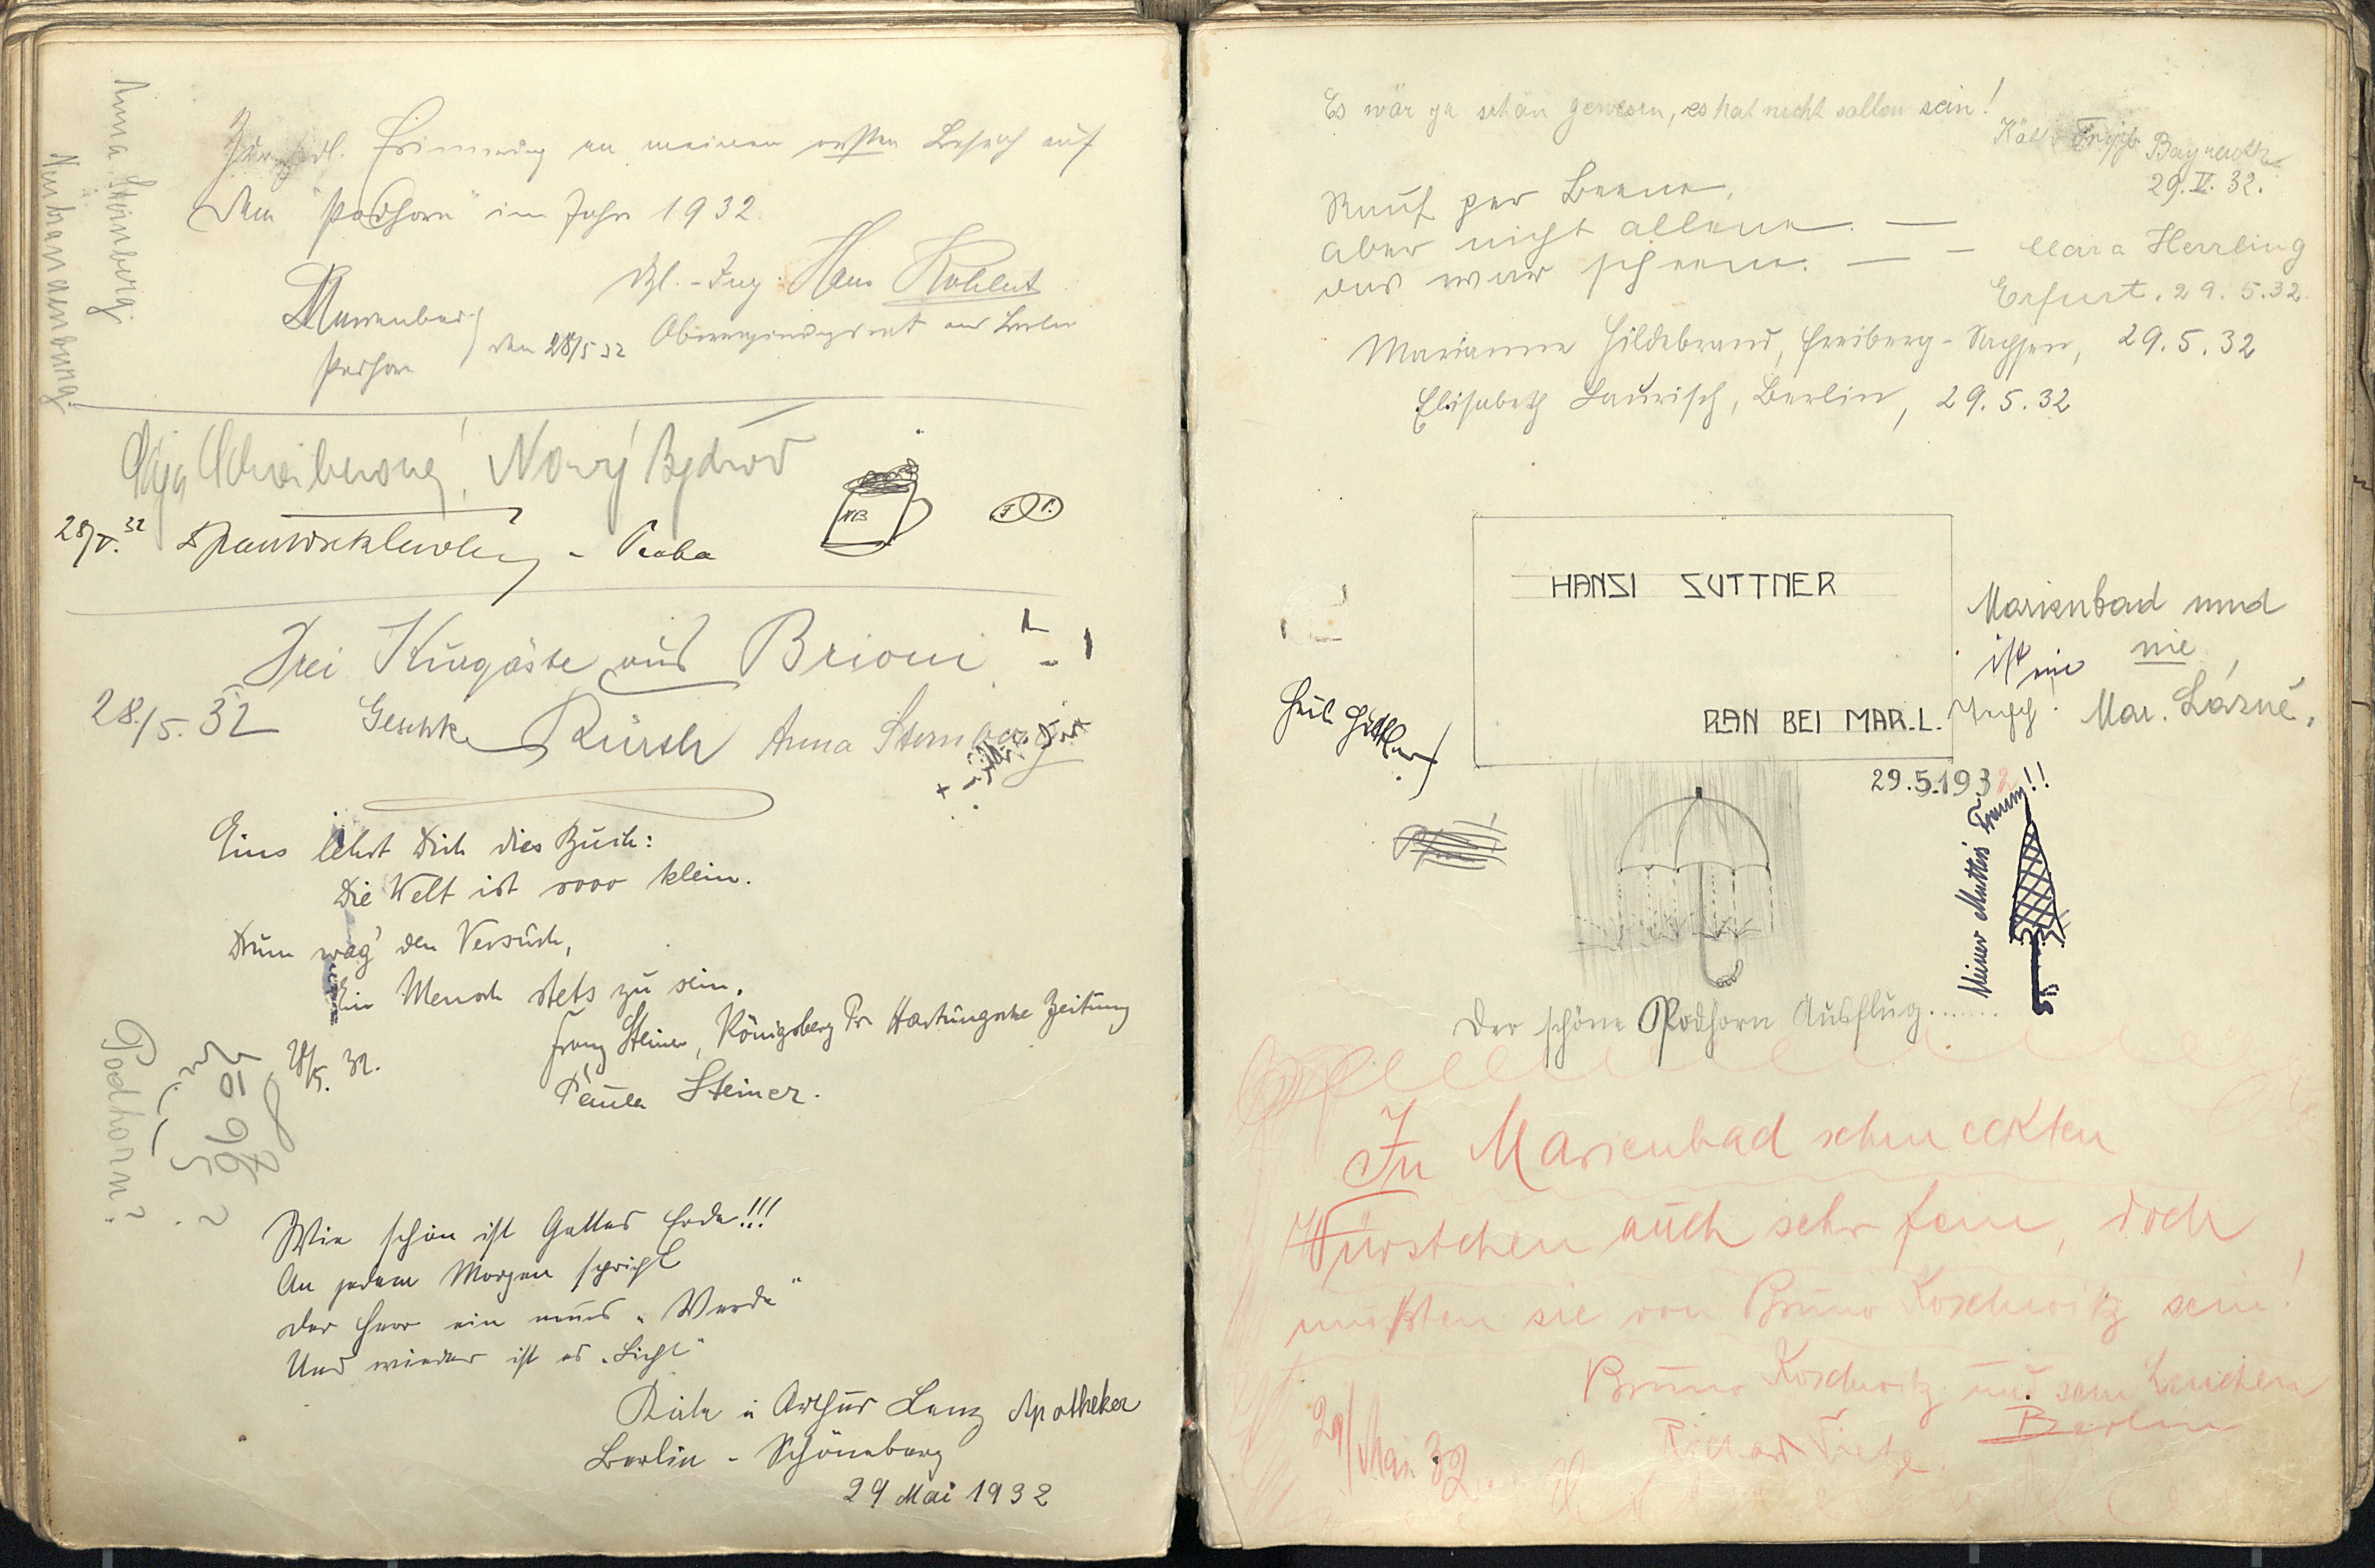 Anna Steinberg.
Neubrandenburg.
Zur frdl. Erinnerung an meinen ersten Besuch auf
dem "Podhorn" im Jahre 1932.
Dpl.-Ing. Hans
Marienbad
Podhorn
den 28/5 32 Oberregierungsrat aus Berlin
Nový Bydžov
NB
28/V. 32
Drei Kurgäste aus Brioni !-!
28./5. 32 Geschke Kürsch Anna Steinberg
Eins lehrt Dich dies Buch:
Die Welt ist sooo klein.
Drum wag' den Versuch,
Ein Mensch stets zu sein.
Franz Steiner, Königsberg Pr. Hartungsche Zeitung
28/5. 32.
Paula Steiner.
Podhorn?
Wie schön ist Gottes Erde!!!
An jedem Morgen spricht
der Herr ein neues „Werde"
Und wieder ist es „Licht"
Käte u Arthur Lenz Apotheker
Berlin - Schöneberg
29 Mai 1932
Es wär ja schön gewesen, es hat nicht sollen sein!
Bayreuth
29. V. 32.
Rauf per Beene,
aber nicht alleene. —
das war scheene. — — Clara Herrling
Erfurt. 29. 5. 32.
Marianne Hildebrand, Freiberg-Sachsen, 29. 5. 32
Elisabeth Laurisch, Berlin, 29. 5. 32
HANSI SUTTNER
RAN BEI MAR.L.
Marienbad und
ist nie nie
Mar. Lázně.
Heil Hittler!
29.5.1932
Meiner Mutter's Traum!!
Der schöne Podhorn Ausflug.......
In Marienbad schmeckten
Würstchen auch sehr fein, doch
mußten sie von Bruno Koschwitz sein!
Bruno Koschwitz und sein Lenchen
Berlin
29/Mai 32.
Richard